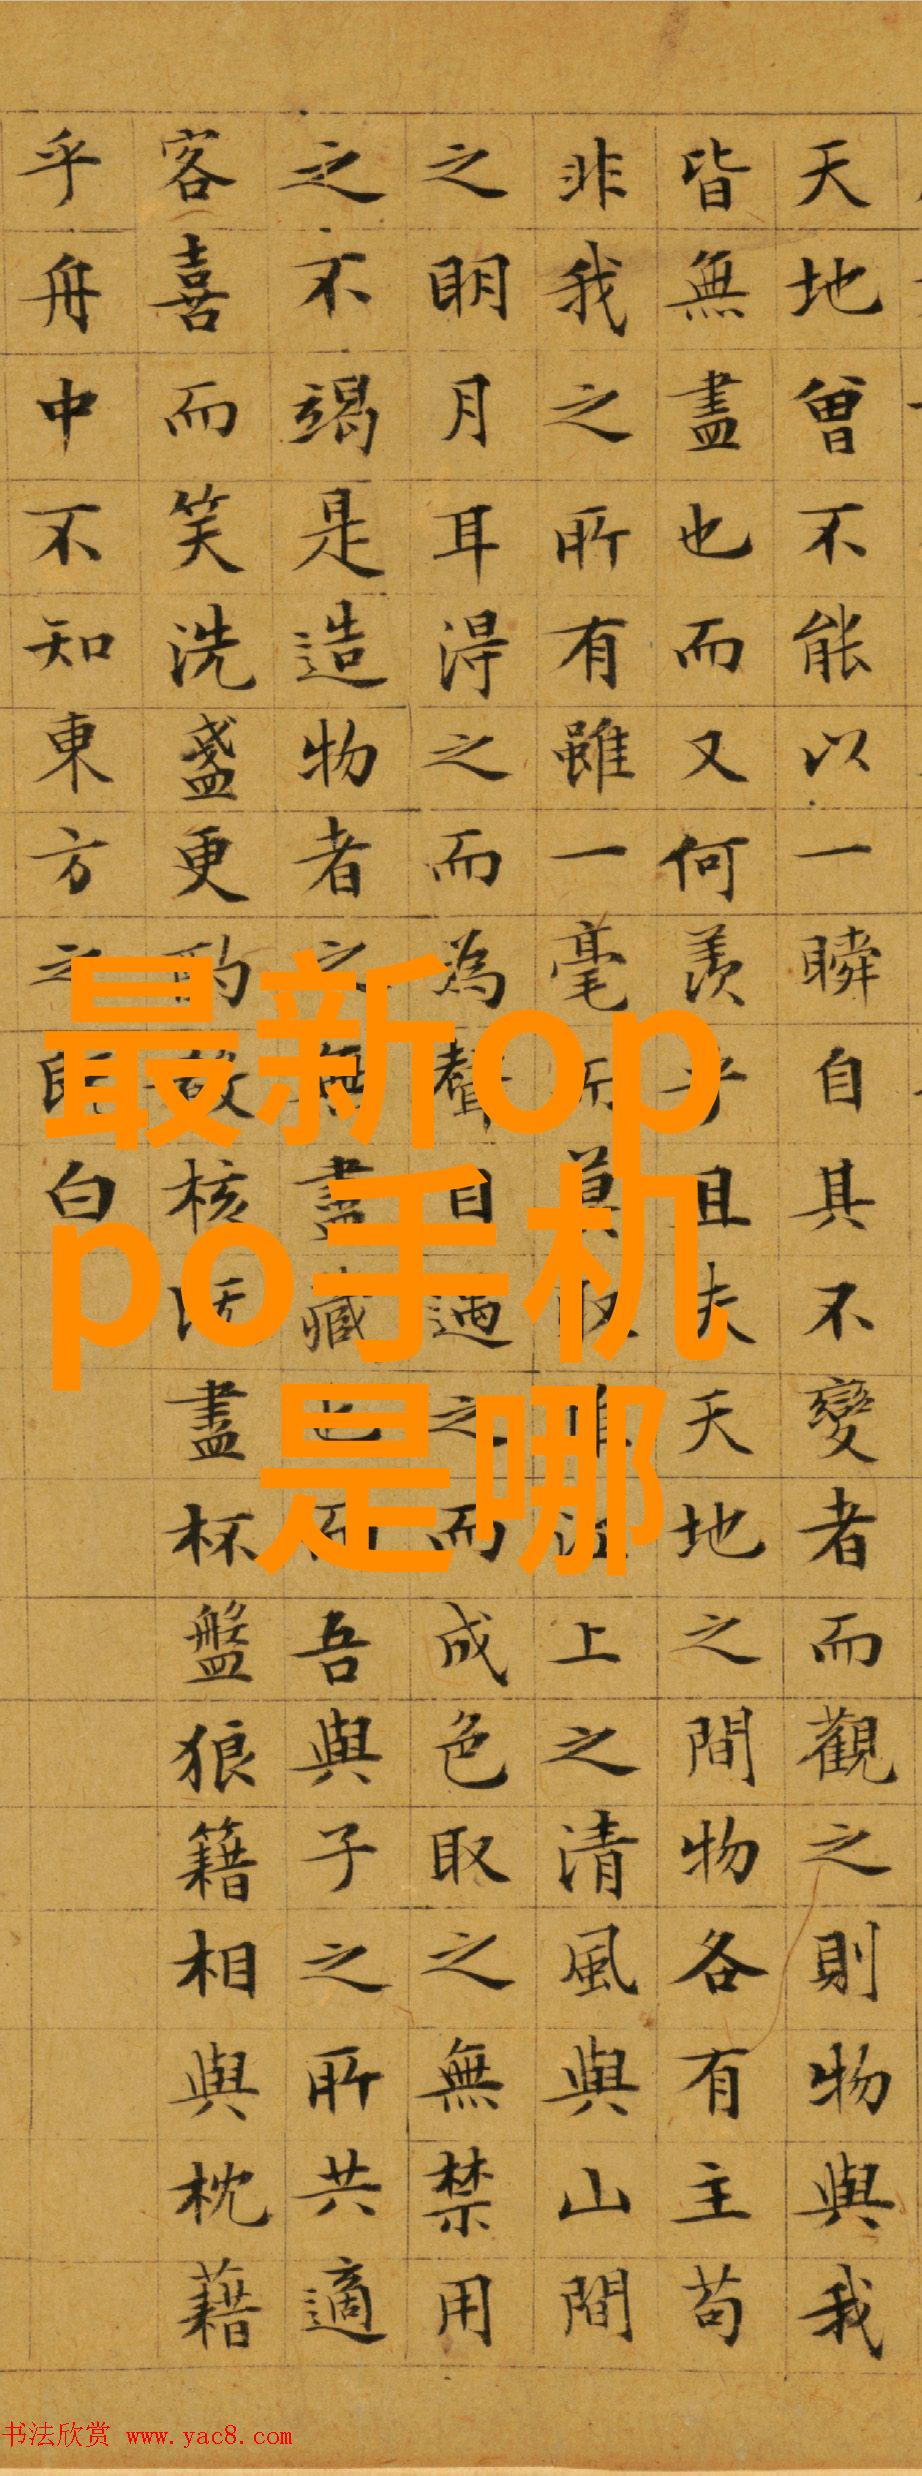 天地曾不能以一瞬自其不變者而觀之則物與我
皆無盡也而又何羨乎且夫天地之間物各有主苟
非我之所有雖一毫而莫取惟江上之清風與山間
之明月耳得之而為聲目遇之而成色取之無禁用
之不竭是造物者之無盡藏也而吾與子之所共適
客喜而笑洗盞更酌肴核既盡杯盤狼籍相與枕藉
乎舟中不知東方之既白
最新op
po手机
是哪
书法欣赏 www.yac8.com